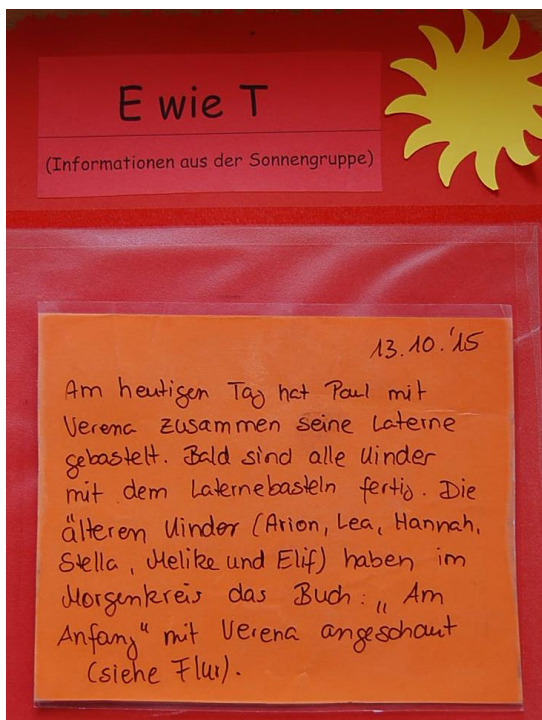 E wie T
(Informationen aus der Sonnengruppe)
13.10.'15
Am heutigen Tag hat Paul mit
Verena zusammen seine Laterne
gebastelt. Bald sind alle Kinder
mit dem Laternebasteln fertig. Die
älteren Kinder (Arion, Lea, Hannah,
Stella, Melike und Elif) haben im
Morgenkreis das Buch: „Am
Anfang“ mit Verena angeschaut
(siehe Flur).